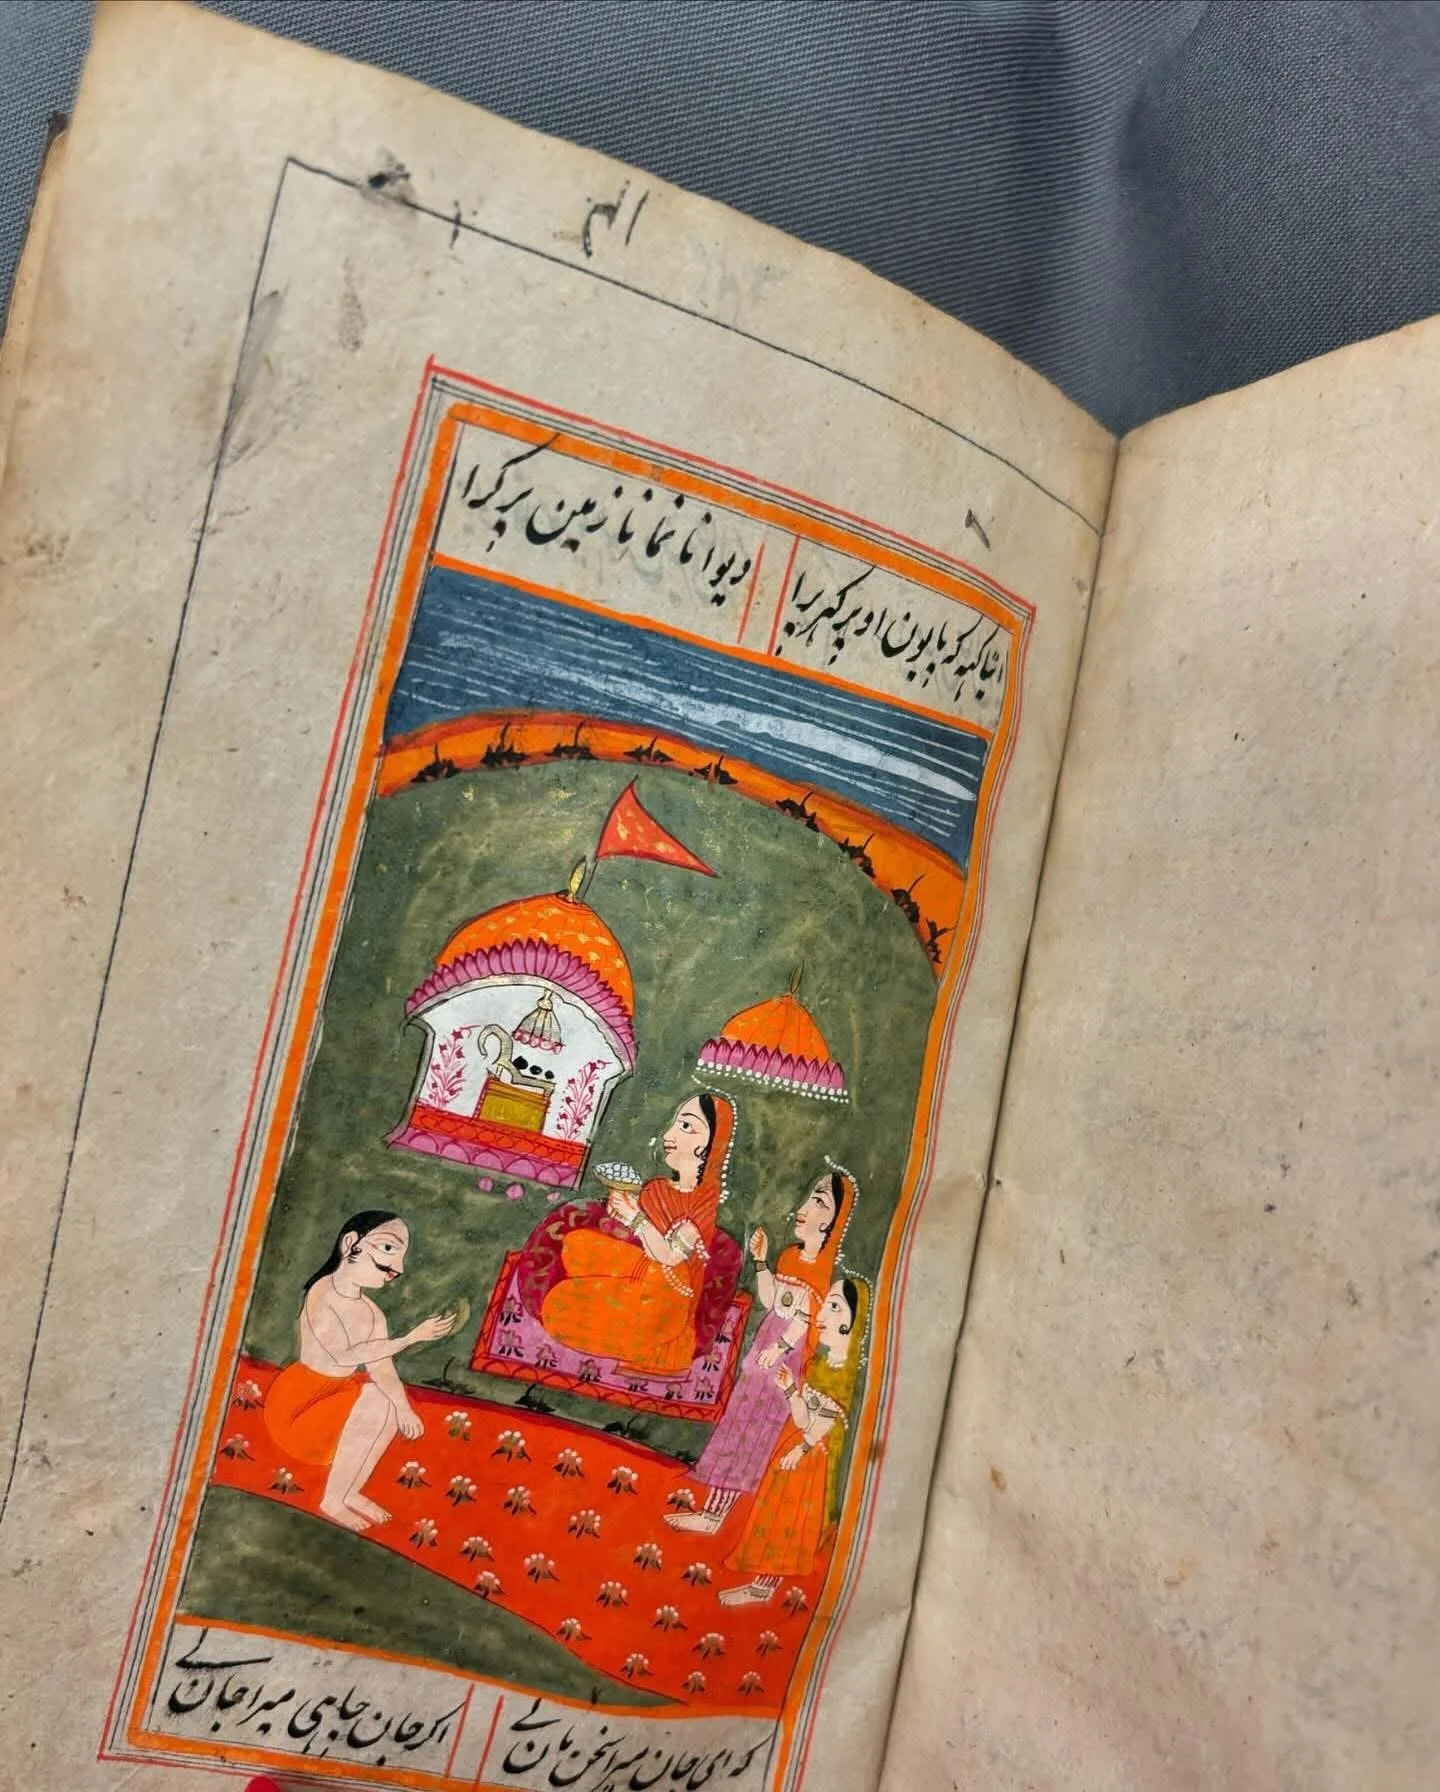 اتنا کہہ کہ پایون اوپر کہر پرا
دیوانا نمانا زمین پر کرا
کہ ای جان میرا سخن مان لے
اکر جان چاہی میرا جان لے